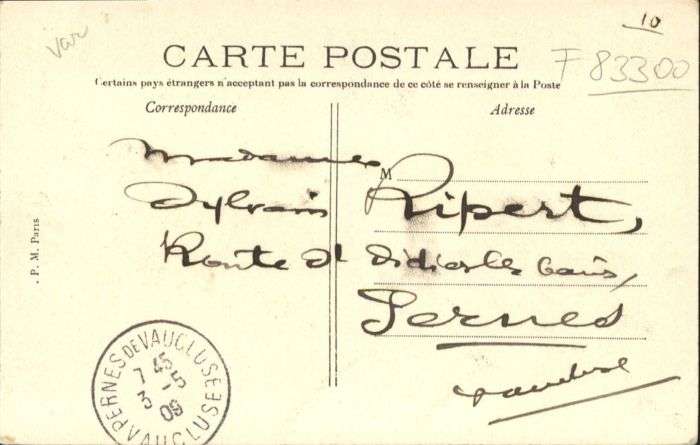 10
Var
CARTE POSTALE
F 83300
Certains pays étrangers n'acceptant pas la correspondance de ce côté se renseigner à la Poste
Correspondance
Adresse
Mesdames
M
Sylvain Ripert,
Route St Didier les bains,
Pernes
Vaucluse
. P. M. Paris
PERNES DE VAUCLUSE
7 45
5
3 09
VAUCLUSE